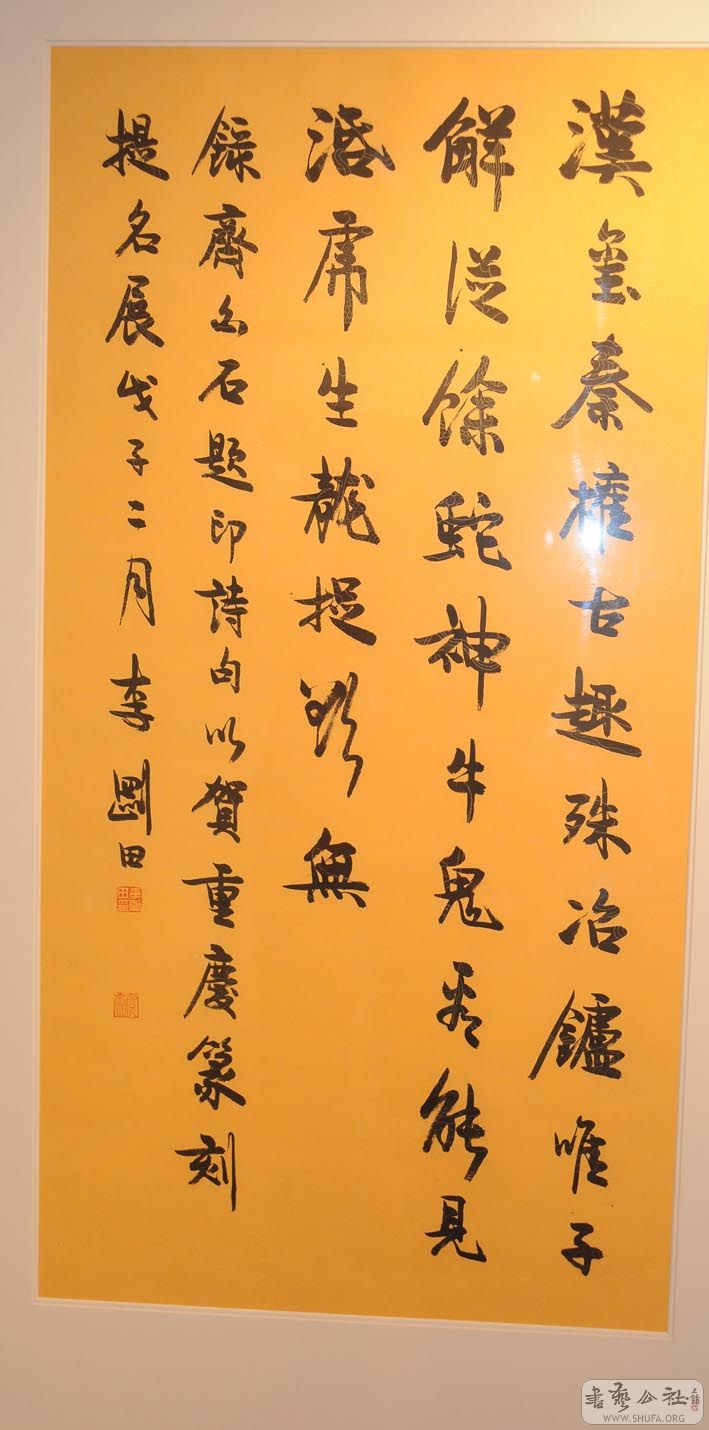 漢璽秦權古趣殊冶鑪唯子
解從餘蛇神牛鬼看能見
活虎生龍捉欲無
錄齊白石題印詩句以賀重慶篆刻
提名展戊子二月李剛田
書藝公社
WWW.SHUFA.ORG